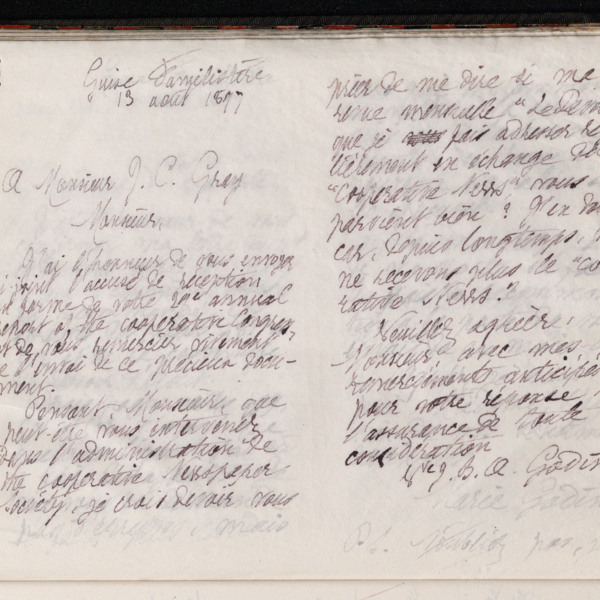 Guise Familistère
13 août 1897
A Monsieur J. C. Gray
Monsieur,
J'ai l'honneur de vous envoyer
ci joint l'accusé de réception
en forme de votre annual
report of the cooperative Congress
et de vous remercier vivement
de l'envoi de ce précieux docu-
ment.
Pensant, Monsieur, que
peut-être vous intervenez
dans l'administration de
the cooperative Newspaper
Society, je crois devoir vous
prier de me dire si ma
revue mensuelle "Le Devoir
que je fais adresser
en échange
"Cooperative News" vous
parvient bien ?
car, depuis longtemps,
ne recevons plus le "Co
rative News".
Veuillez agréer,
Monsieur avec mes
remerciements anticipés
pour votre réponse
l'assurance de toute
considération
Vve J. B. A. Godin
Marie Godin